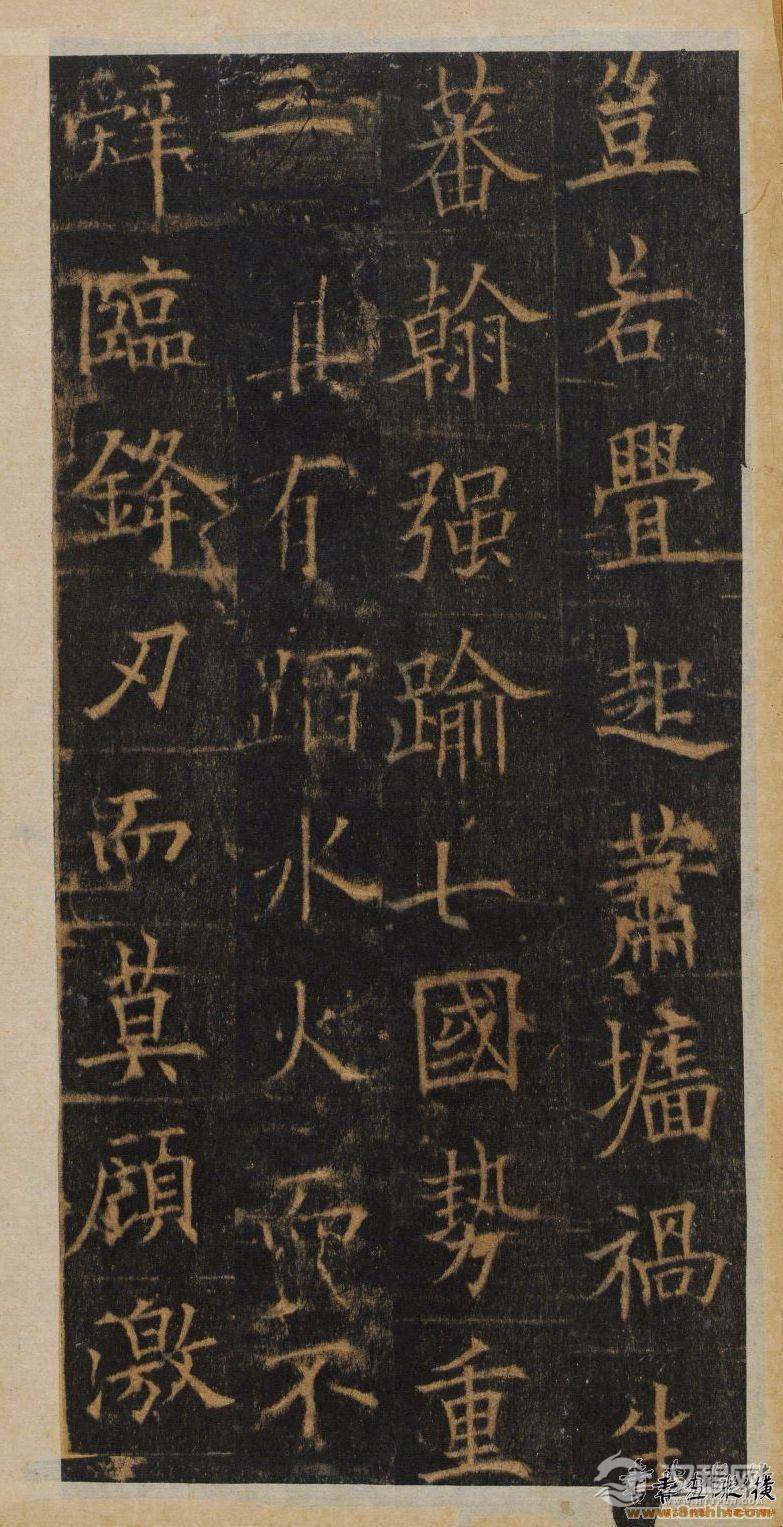 豈若舋起蕭墻禍生
蕃翰强踰七國勢重
三其有蹈水火而不
辤臨鋒刃而莫顧激